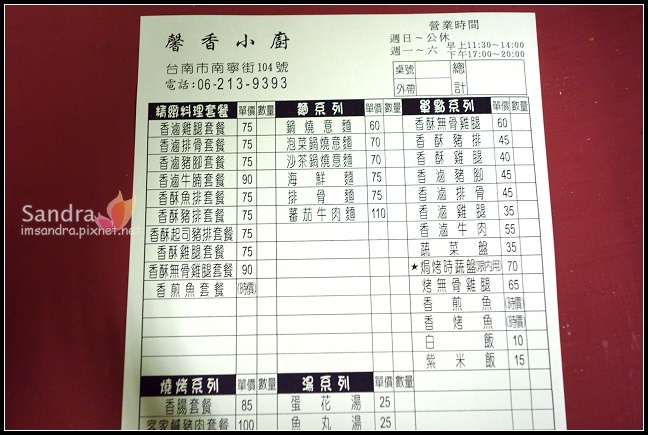 馨香小廚
台南市南寧街104號
電話:06-213-9393
營業時間
週日～公休
週一～六 早上11:30~14:00
下午17:00~20:00
桌號
外帶
總計
精緻料理套餐 單價 數量
香滷雞腿套餐 75
香滷排骨套餐 75
香滷豬腳套餐 75
香滷牛腩套餐 90
香酥魚排套餐 75
香酥豬排套餐 75
香酥起司豬排套餐 75
香酥雞腿套餐 75
香酥無骨雞腿套餐 90
香煎魚套餐 (時價)
麵系列 單價 數量
鍋燒意麵 60
泡菜鍋燒意麵 70
沙茶鍋燒意麵 70
海鮮麵 75
排骨麵 75
蕃茄牛肉麵 110
單點系列 單價 數量
香酥無骨雞腿 60
香酥豬排 45
香酥雞腿 40
香滷豬腳 45
香滷排骨 45
香滷雞腿 35
香滷牛肉 55
蔬菜盤 35
★焗烤時蔬盤(限內用) 70
烤無骨雞腿 65
香煎魚 (時價)
香烤魚 (時價)
白飯 10
紫米飯 15
燒烤系列 單價 數量
香腸套餐 85
客家鹹豬肉套餐 100
湯系列 單價 數量
蛋花湯 25
魚丸湯 25
Sandra
imsandra.pixnet.net